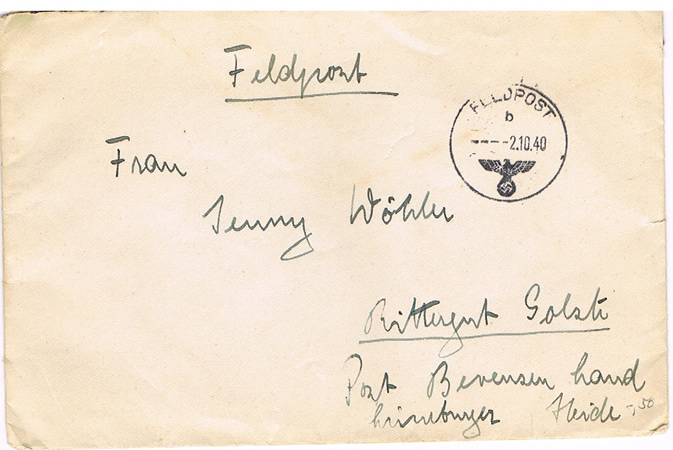 Feldpost
FELDPOST
b
---- -2.10.40
Frau
Jenny Wöhler
Rittergut Golste
Post Bevensen Land
Lüneburger Heide
-,50